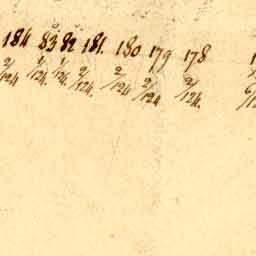 184 83 82 181. 180 179 178
2/124 1/124. 1/124. 2/124. 2/124 2/124 2/124.